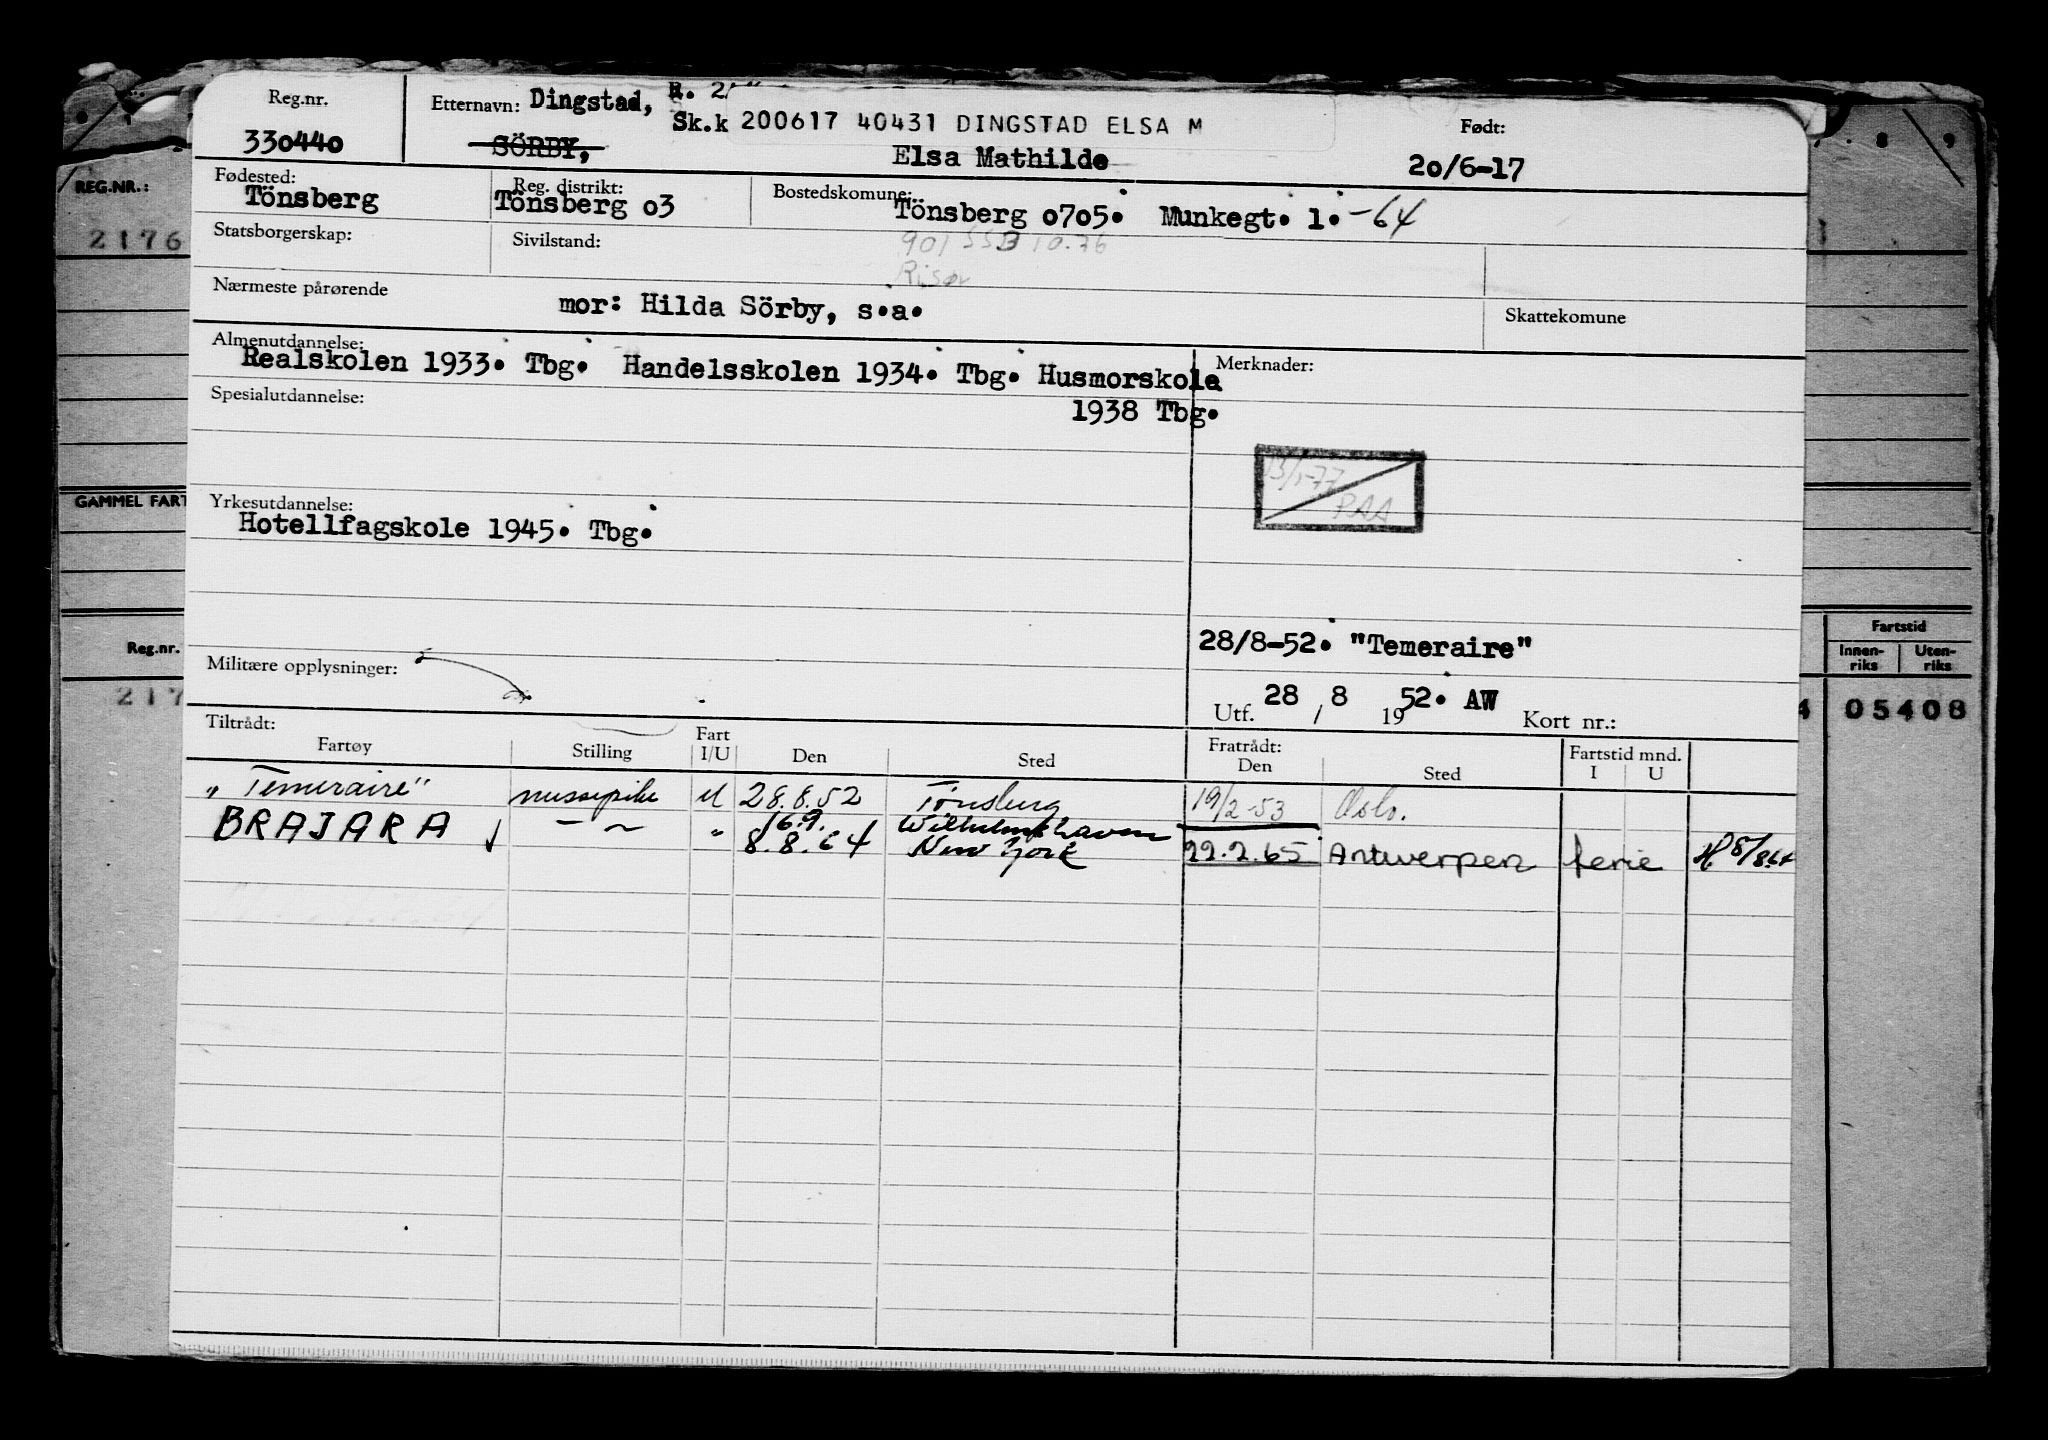 Reg.nr. Etternavn: Dingstad,
Sk.k 200617 40431 DINGSTAD ELSA M Født:
330440 SÖRBY, Elsa Mathilde 20/6-17
Fødested: Reg. distrikt: Bostedskomune:
Tönsberg Tönsberg 03 Tönsberg 0705. Munkegt. 1. -64
Statsborgerskap: Sivilstand: 901 SSB 10.76
Risør
Nærmeste pårørende mor: Hilda Sörby, s.a. Skattekomune
Almenutdannelse: Merknader:
Realskolen 1933. Tbg. Handelsskolen 1934. Tbg. Husmorskole
Spesialutdannelse: 1938 Tbg.
13/1-77
PAA
Yrkesutdannelse:
Hotellfagskole 1945. Tbg.
28/8-52. "Temeraire"
Militære opplysninger:
Utf. 28 / 8 1952. AW Kort nr.:
Tiltrådt: Fratrådt: Fartstid mnd.
Fartøy Stilling Fart I/U Den Sted Den Sted I U
"Temeraire" messepike U 28.8.52 Tönsberg 19/2-53 Oslo.
BRAJARA - ~ " 16.9. Wilhelmshaven
8.8.64 New York 22.2.65 Antwerpen ferie
REG.NR.:
2176
GAMMEL FART
Reg.nr.
217
8 9
Fartstid
Innen-riks Uten-riks
4 05408